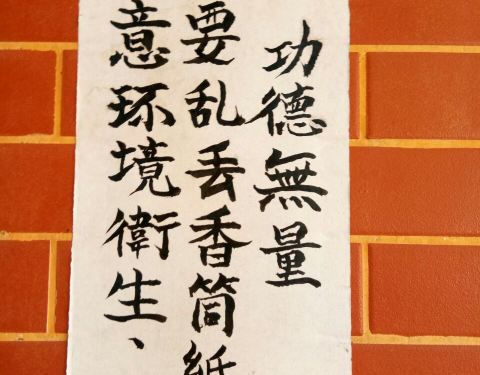 功德無量
要乱丢香筒紙
意环境衛生、